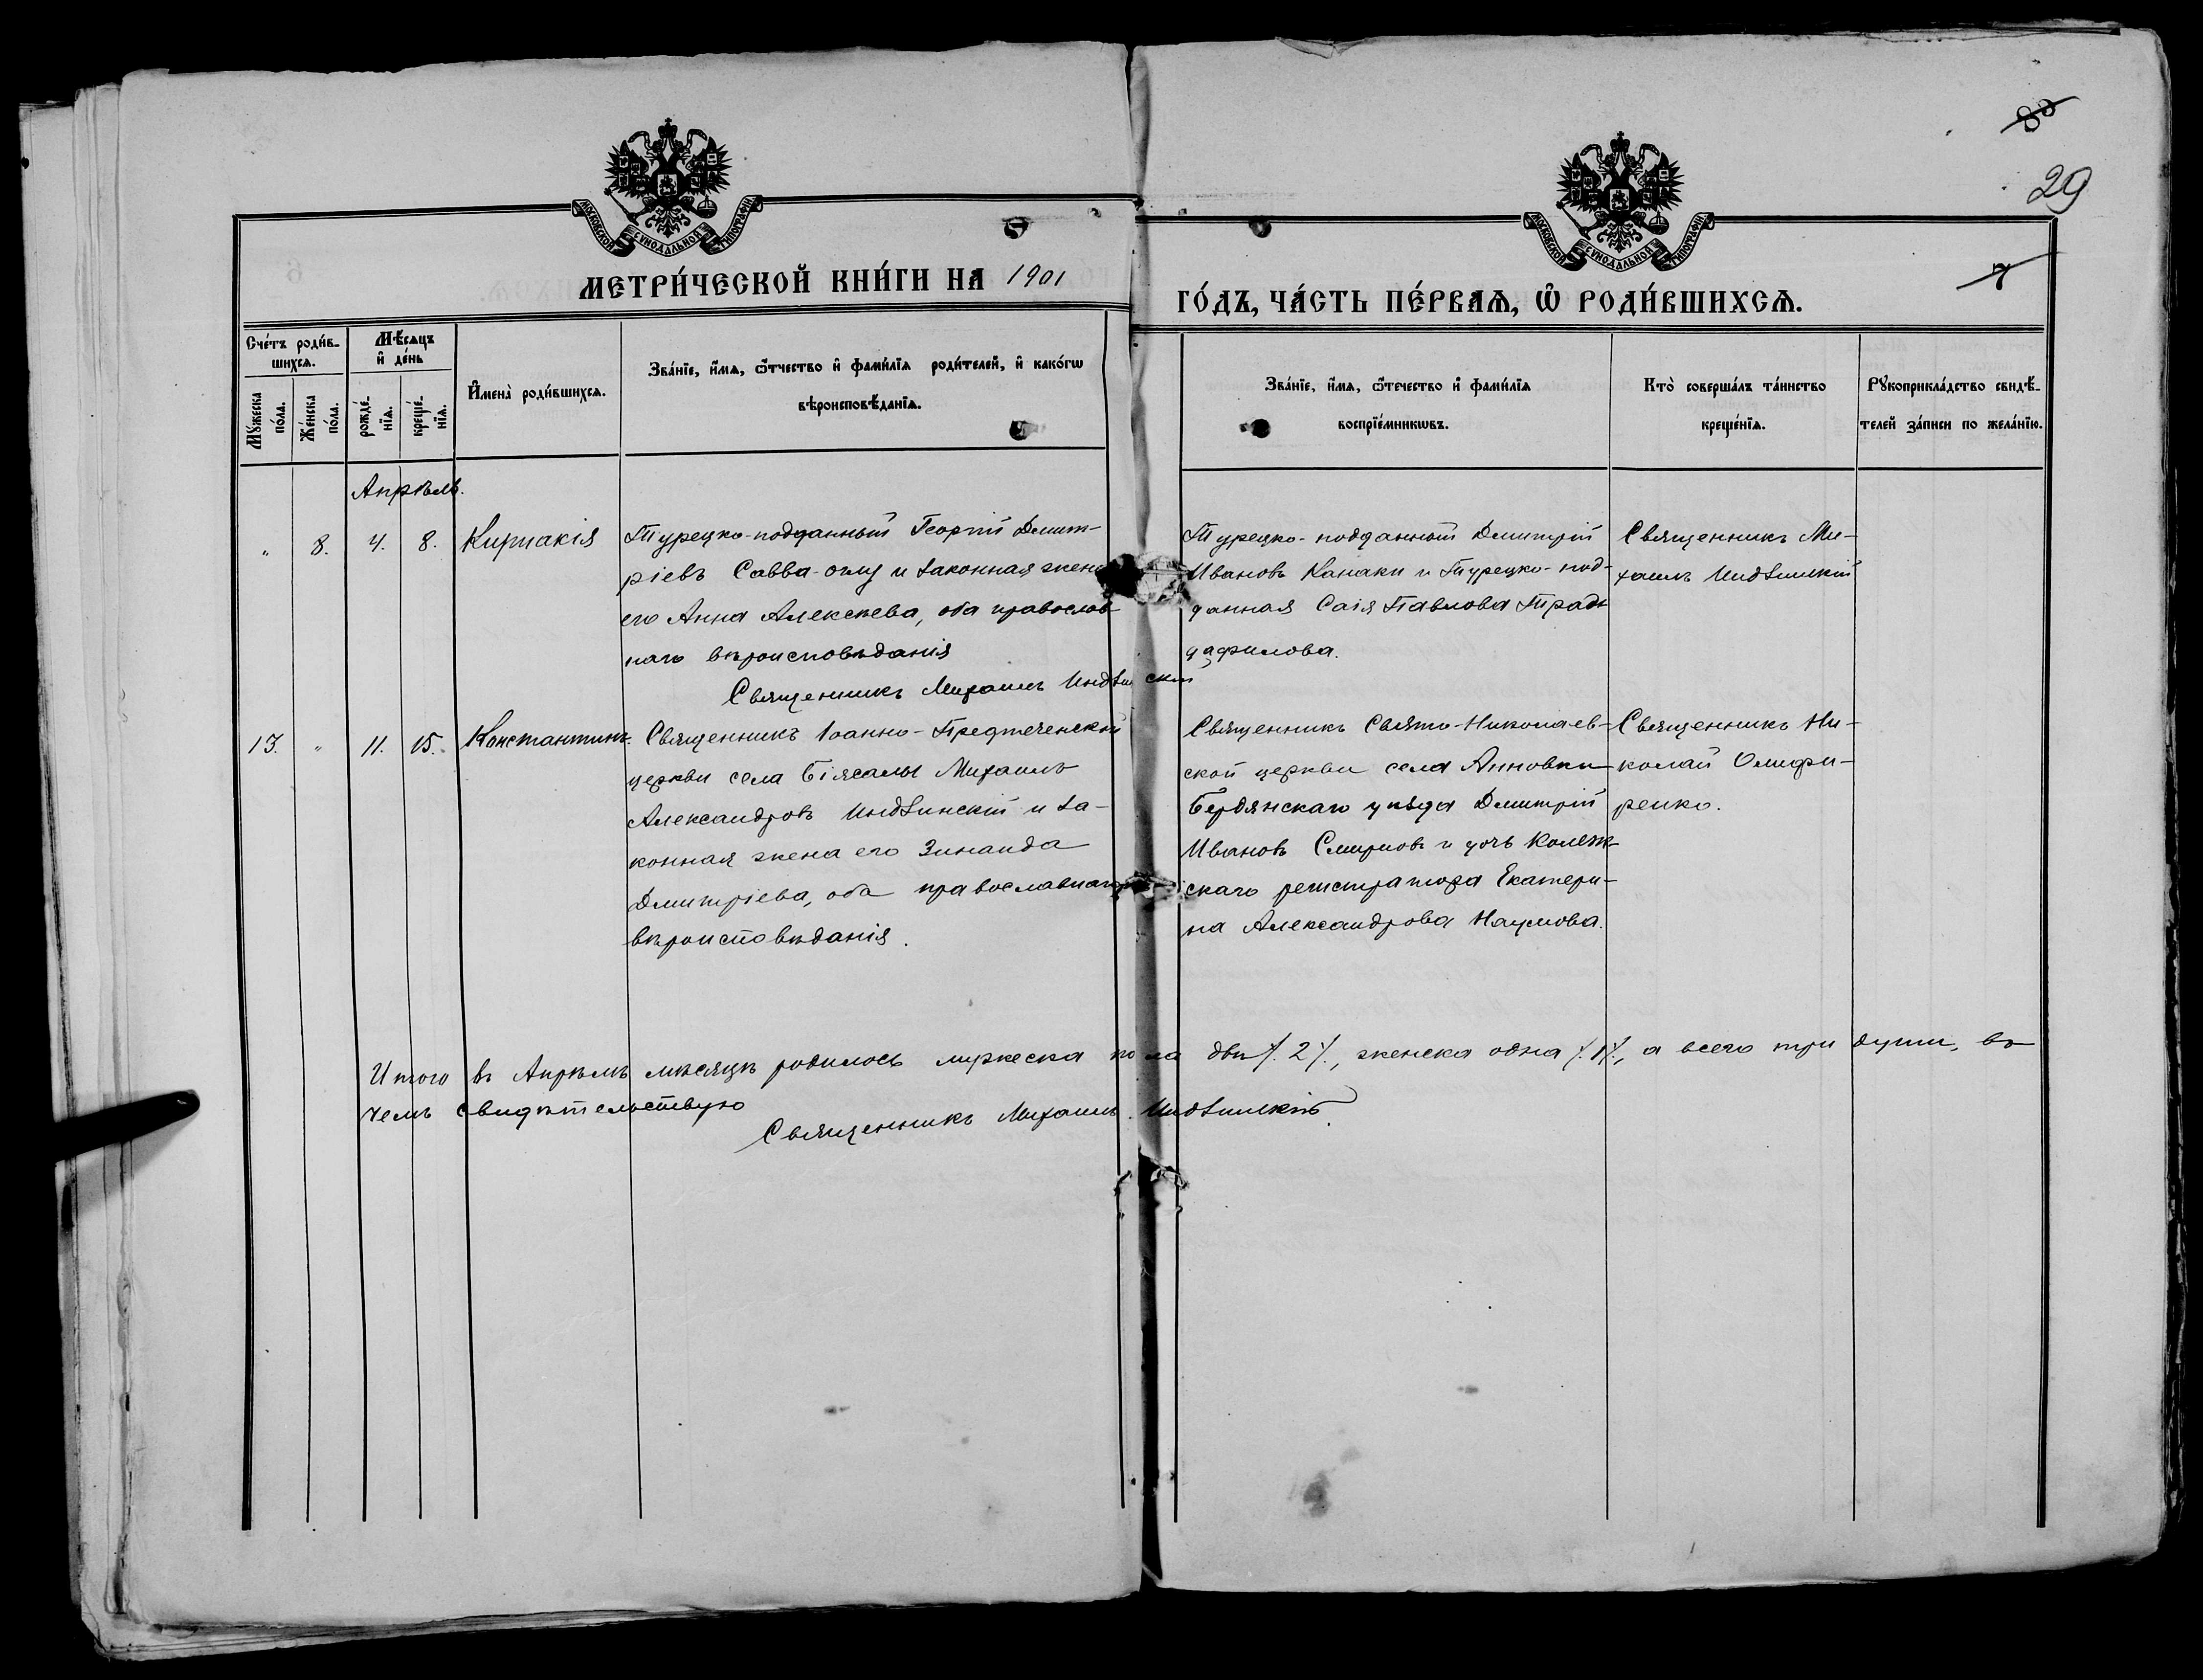 88
29
7
МОСКОВСКОЙ СѴНОДАЛЬНОЙ ТИПОГРАФІИ
МОСКОВСКОЙ СѴНОДАЛЬНОЙ ТИПОГРАФІИ
МЕТРИ́ЧЕСКОЙ КНИ́ГИ НА 1901
ГО́ДЪ, ЧА́СТЬ ПЕ́РВАѦ, Ѽ РОДИ́ВШИХСѦ.
Сче́тъ роди́в-
шихсѧ.
Мѣ́сѧцъ
и҆ де́нь
Мꙋ́жеска
по́ла.
Же́нска
по́ла.
рожде́-
нїѧ.
креще́-
нїѧ.
И҆мена̀ роди́вшихсѧ.
Зва́нїе, и҆́мѧ, ѻ҆́тчество и҆ фами́лїѧ роди́телей, и҆ како́гѡ
вѣроисповѣ́данїѧ.
Зва́нїе, и҆́мѧ, ѻ҆́течество и҆ фами́лїѧ
воспрїе́мникѡвъ.
Кто̀ соверша́лъ та́инство
креще́нїѧ.
Рꙋкоприкла́дство свидѣ́-
телей за́писи по жела́нїю.
Апрѣль.
" 8. 4. 8. Кириакія
Турецко-подданный Георгій Дмит-
ріевъ Савва-оглу и законная жена
его Анна Алексѣева, оба православ-
наго вѣроисповѣданія
Священникъ Михаилъ Индзинскій
Турецко-подданный Дмитрій
Ивановъ Канаки и Турецко-под-
данная Саія Павлова Тран-
дафилова.
Священникъ Ми-
хаилъ Индзинскій
13. " 11. 15. Константинъ.
Священникъ Іоанно-Предтеченской
церкви села Біясалы Михаилъ
Александровъ Индзинскій и за-
конная жена его Зинаида
Дмитріева, оба православнаго
вѣроисповѣданія.
Священникъ Свято-Николаев-
ской церкви села Анновки
Бердянскаго уѣзда Дмитрій
Ивановъ Смирновъ и дочь Колеж-
скаго регистратора Екатери-
на Александрова Наумова.
Священникъ Ни-
колай Олифи-
ренко.
Итого въ Апрѣлѣ мѣсяцѣ родилось мужеска пола два /. 2 /., женска одна /. 1 /., а всего три души, въ
чемъ свидѣтельствую
Священникъ Михаилъ Индзинскій.